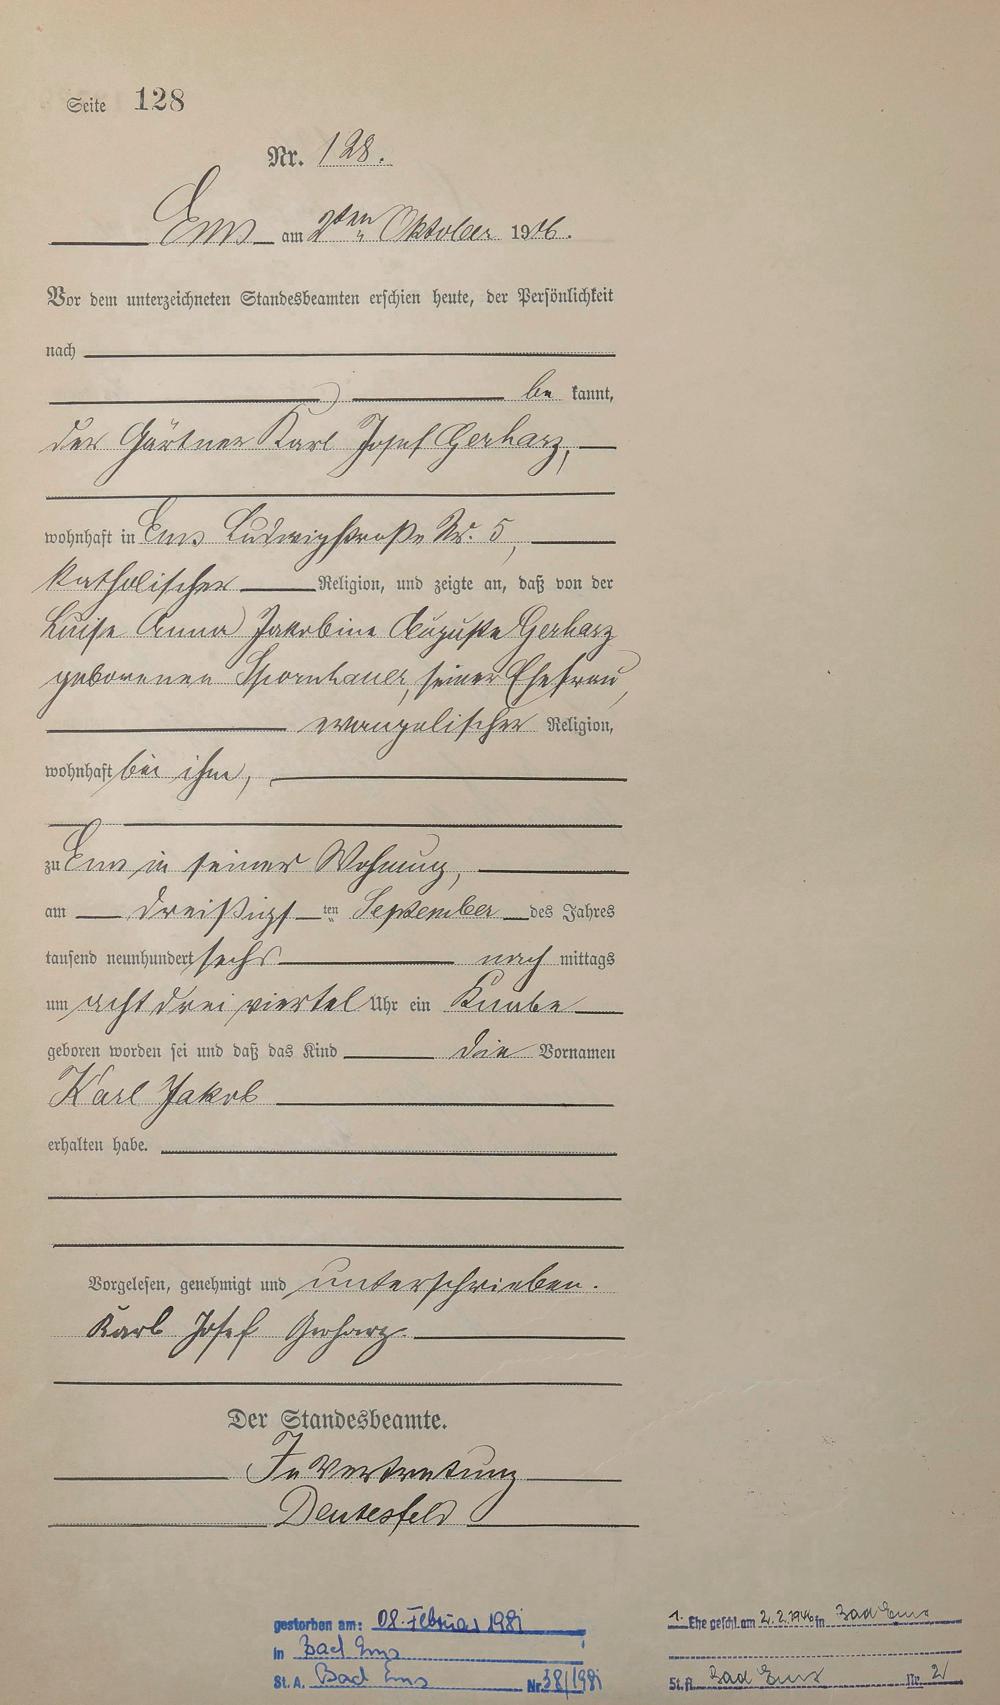 Seite 128
Nr. 128.
Ems am 2ten Oktober 1906.
Vor dem unterzeichneten Standesbeamten erschien heute, der Persönlichkeit
nach
be kannt,
der Gärtner Karl Josef Gerharz,
wohnhaft in Ems Ludwigstraße Nr. 5,
katholischer Religion, und zeigte an, daß von der
Luise Anna Jakobine Auguste Gerharz
geborenen Spornhauer, seiner Ehefrau,
evangelischer Religion,
wohnhaft bei ihm,
zu Ems in seiner Wohnung,
am dreißigsten September des Jahres
tausend neunhundert sechs nach mittags
um acht drei viertel Uhr ein Knabe
geboren worden sei und daß das Kind die Vornamen
Karl Jakob
erhalten habe.
Vorgelesen, genehmigt und unterschrieben.
Karl Josef Gerharz.
Der Standesbeamte.
In Vertretung
gestorben am: 08. Februar 1981
in Bad Ems
St. A. Bad Ems Nr. 38/1981
1. Ehe geschl. am 2.2.1946 in Bad Ems
St. A. Bad Ems Nr. 2